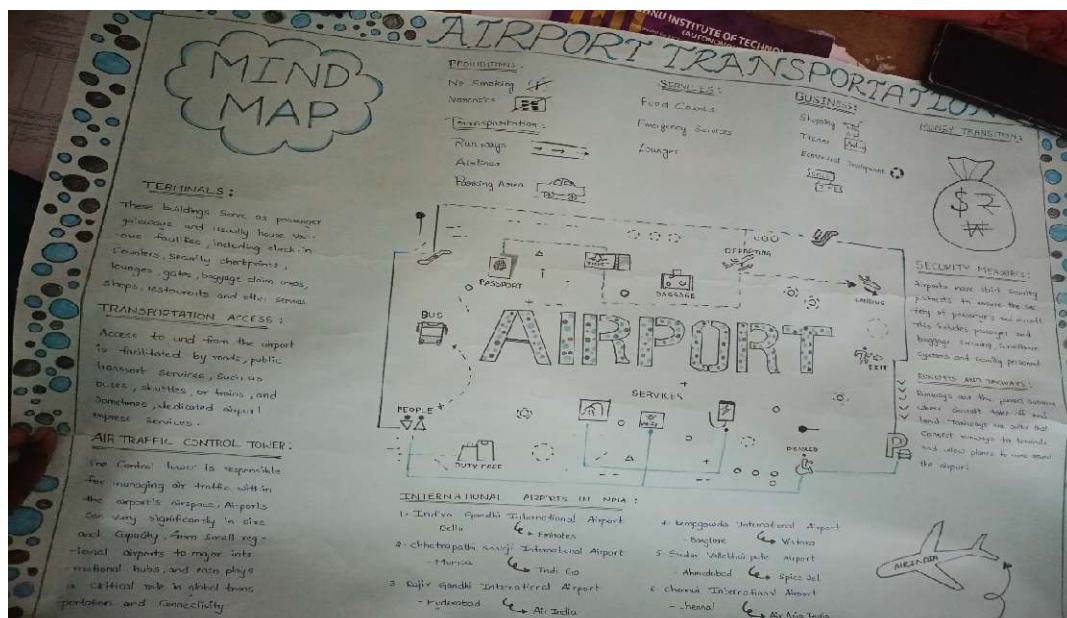 HNU INSTITUTE OF TECHNOL
(AUTONOMOUS
AIRPORT TRANSPORTATION
MIND
MAP
PROHIBITIONS:
No Smoking
Transportation:
Runways
Airlines
Parking Area
SERVICES:
Food Courts
Emergency Services
Lounges
BUSINESS:
Shopping
Economical Development
MONEY TRANSITION:
$ ₹
₩
TERMINALS:
These buildings serve as passenger
gateways and usually house vari
-ous facilities, including check-in
Counters, security checkpoints,
lounges, gates, baggage claim areas,
shops, restaurants and other services
TRANSPORTATION ACCESS:
Access to and from the airport
is facilitated by roads, public
transport services, such as
buses, shuttles, or trains, and
Sometimes, dedicated airport
express services.
AIR TRAFFIC CONTROL TOWER:
The Control tower is responsible
for managing air traffic within
the airport's airspace, Airports
Can vary significantly in size
and Capacity, from small reg
-ional airports to major inte
-rnational hubs, and each plays
a critical role in global trans
-portation and Connectivity
PASSPORT
TICKET
BAGGAGE
DEPARTING
LANDING
BUS
AIRPORT
EXIT
PEOPLE
SERVICES
WI-FI
DUTY FREE
DISABLED
P
SECURITY MEASURES:
Airports have strict security
protocols to ensure the saf
-ety of passengers and aircraft
This includes passenger and
baggage screening, surveillance
systems and security personnel
RUNWAYS AND TAXIWAYS:
Runways are the paved surfaces
where aircraft take off and
land. Taxiways are paths that
Connect runways to terminals
and allow planes to move around
the airport.
INTERNATIONAL AIRPORTS IN INDIA:
1- Indira Gandhi International Airport
- Delhi Emirates
2- Chhetrapathi International Airport
- Indi Go
3- Rajiv Gandhi International Airport
- Hyderabad Air India
4- Kempgowda International Airport
- Banglore Vistara
5- Sardar Airport
- Ahmedabad Spice Jet
6 Chennai International Airport
- Chennai Air Asia India
AIR INDIA